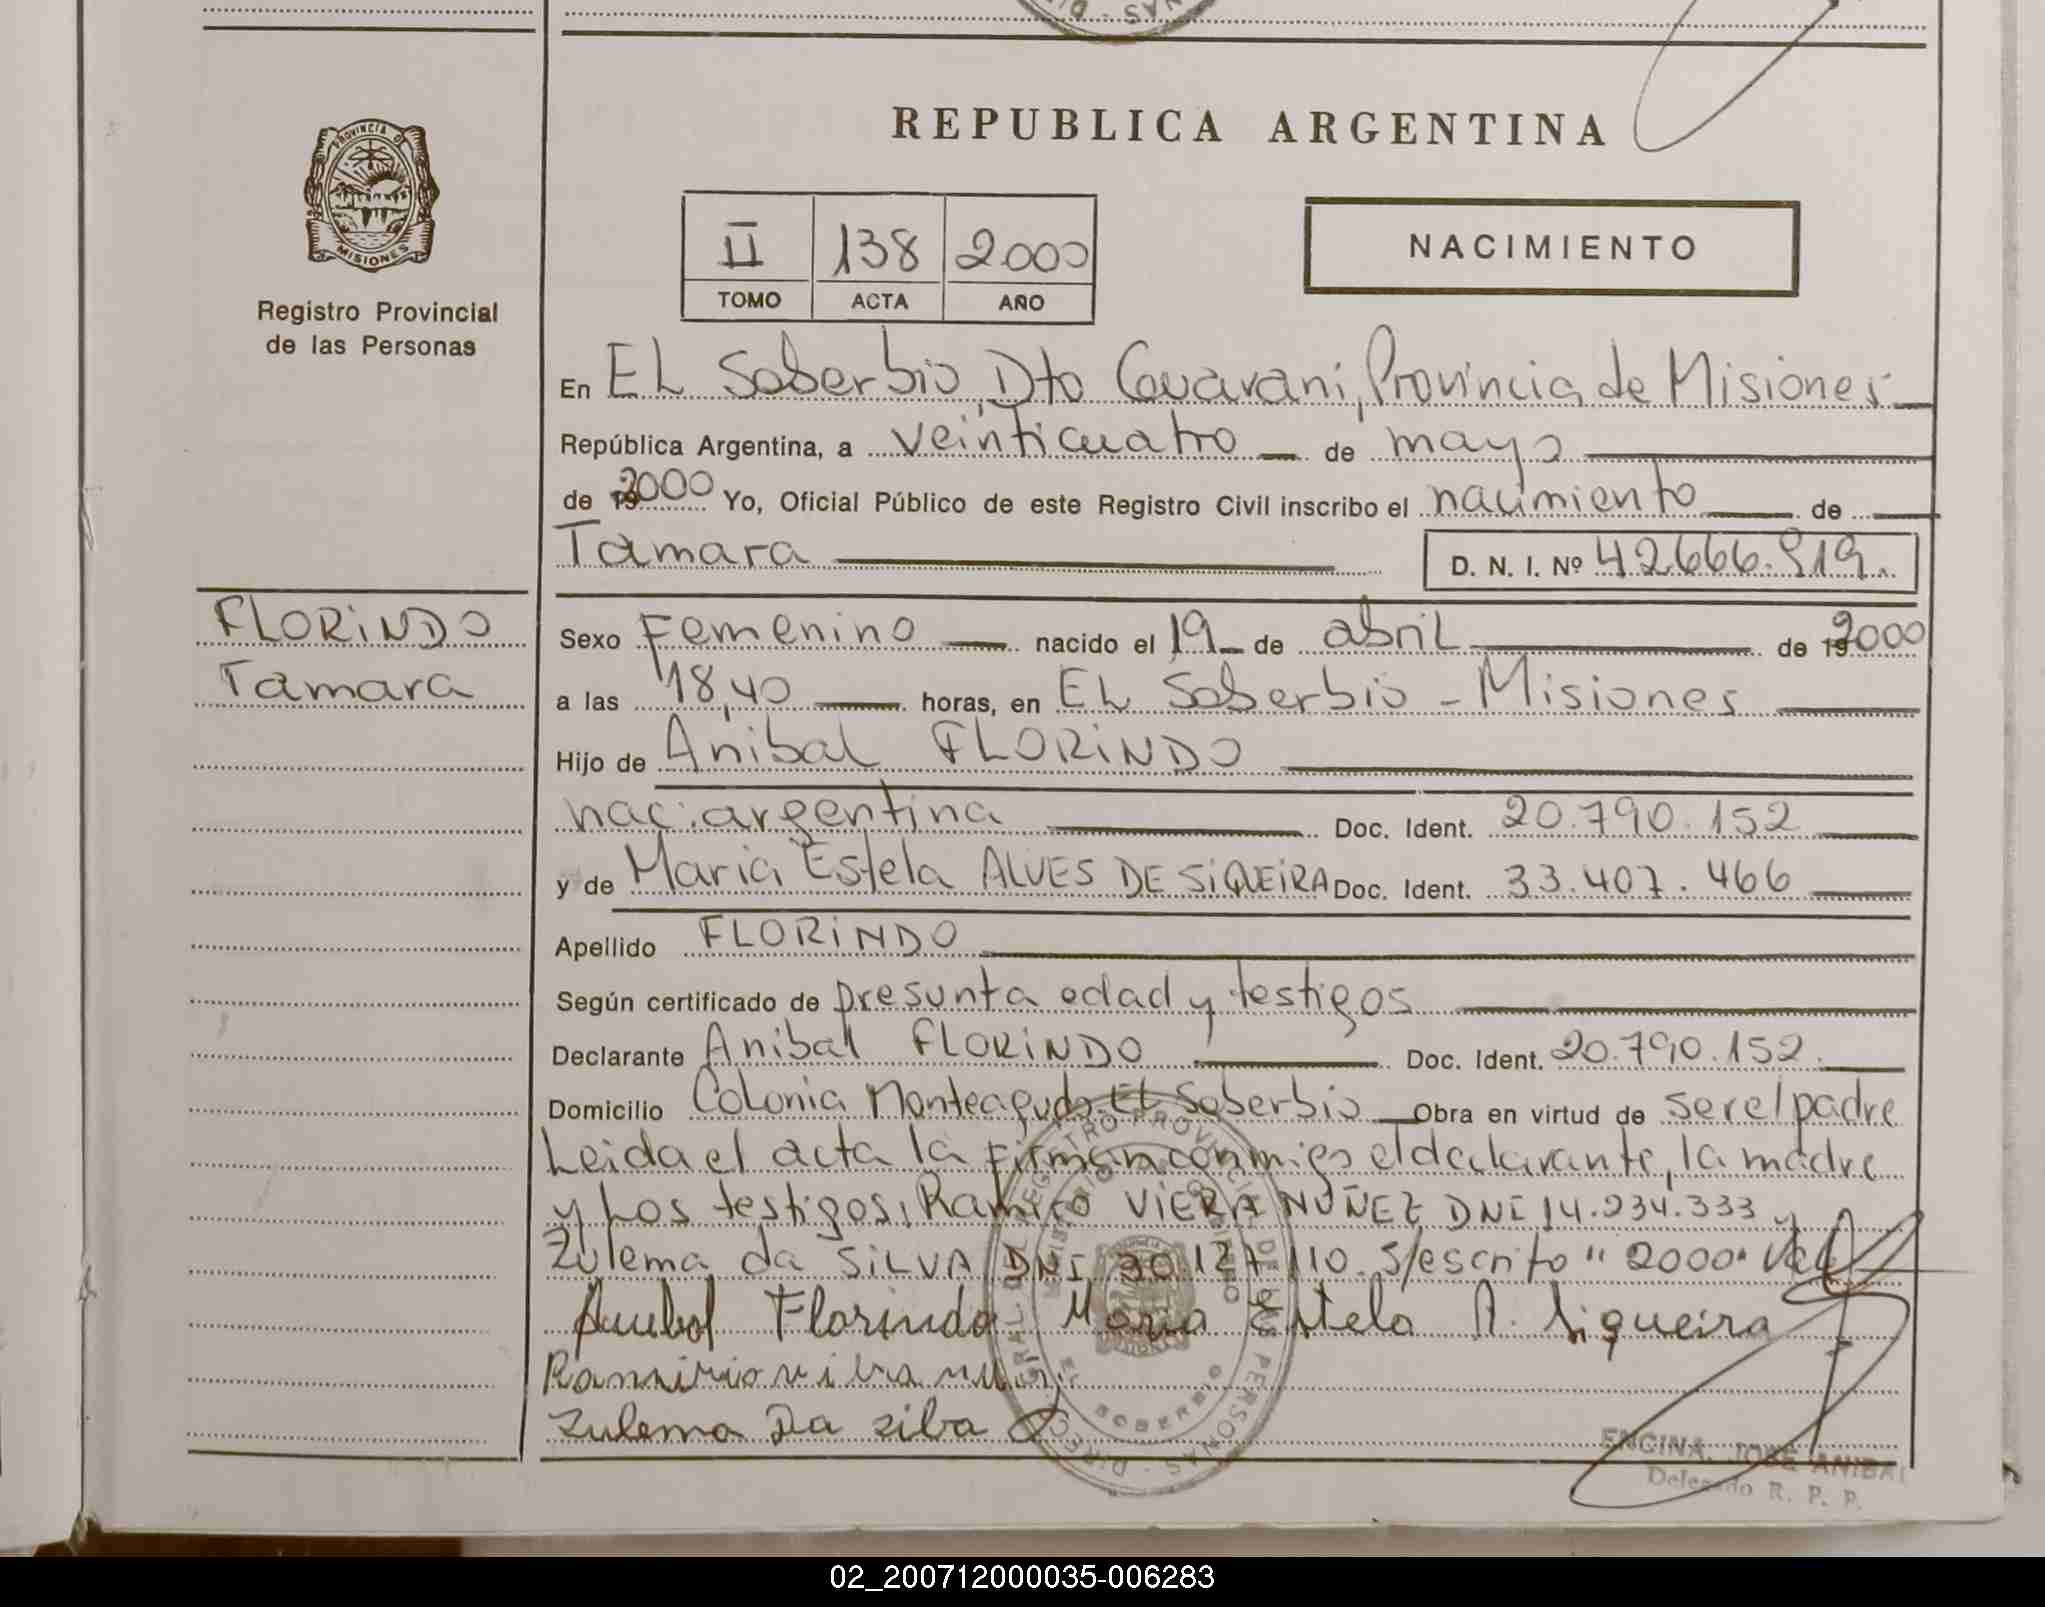 REPUBLICA ARGENTINA
PROVINCIA D
MISIONES
Registro Provincial
de las Personas
II 138 2000
TOMO ACTA AÑO
NACIMIENTO
En EL Soberbio, Dto Guarani, Provincia de Misiones
República Argentina, a veinticuatro de mayo
de 2000 Yo, Oficial Público de este Registro Civil inscribo el nacimiento de
Tamara D. N. I. Nº 42.666.919.
FLORINDO
Tamara
Sexo Femenino nacido el 19 de abril de 2000
a las 18,40 horas, en EL Soberbio - Misiones
Hijo de Anibal FLORINDO
nac. argentina Doc. Ident. 20.790.152
y de Maria Estela ALVES DE SiQUEiRA Doc. Ident. 33.407.466
Apellido FLORINDO
Según certificado de presunta edad y testigos
Declarante Anibal FLORINDO Doc. Ident. 20.790.152.
Domicilio Colonia Monteagudo-EL Soberbio Obra en virtud de ser el padre
Leida el acta la firman conmigo el declarante, la madre
y Los testigos, Ramiro VIERA NUÑEZ DNI 14.234.333 y
Zulema da SILVA DNI 30.127.110. S/escrito "2000" Vale
Anibal Florindo Maria Estela A. Siqueira
Zulema Da silba
EL SOBERBIO
ENCINA, JOSE ANIBAL
Delegado R. P. P.
02_200712000035-006283